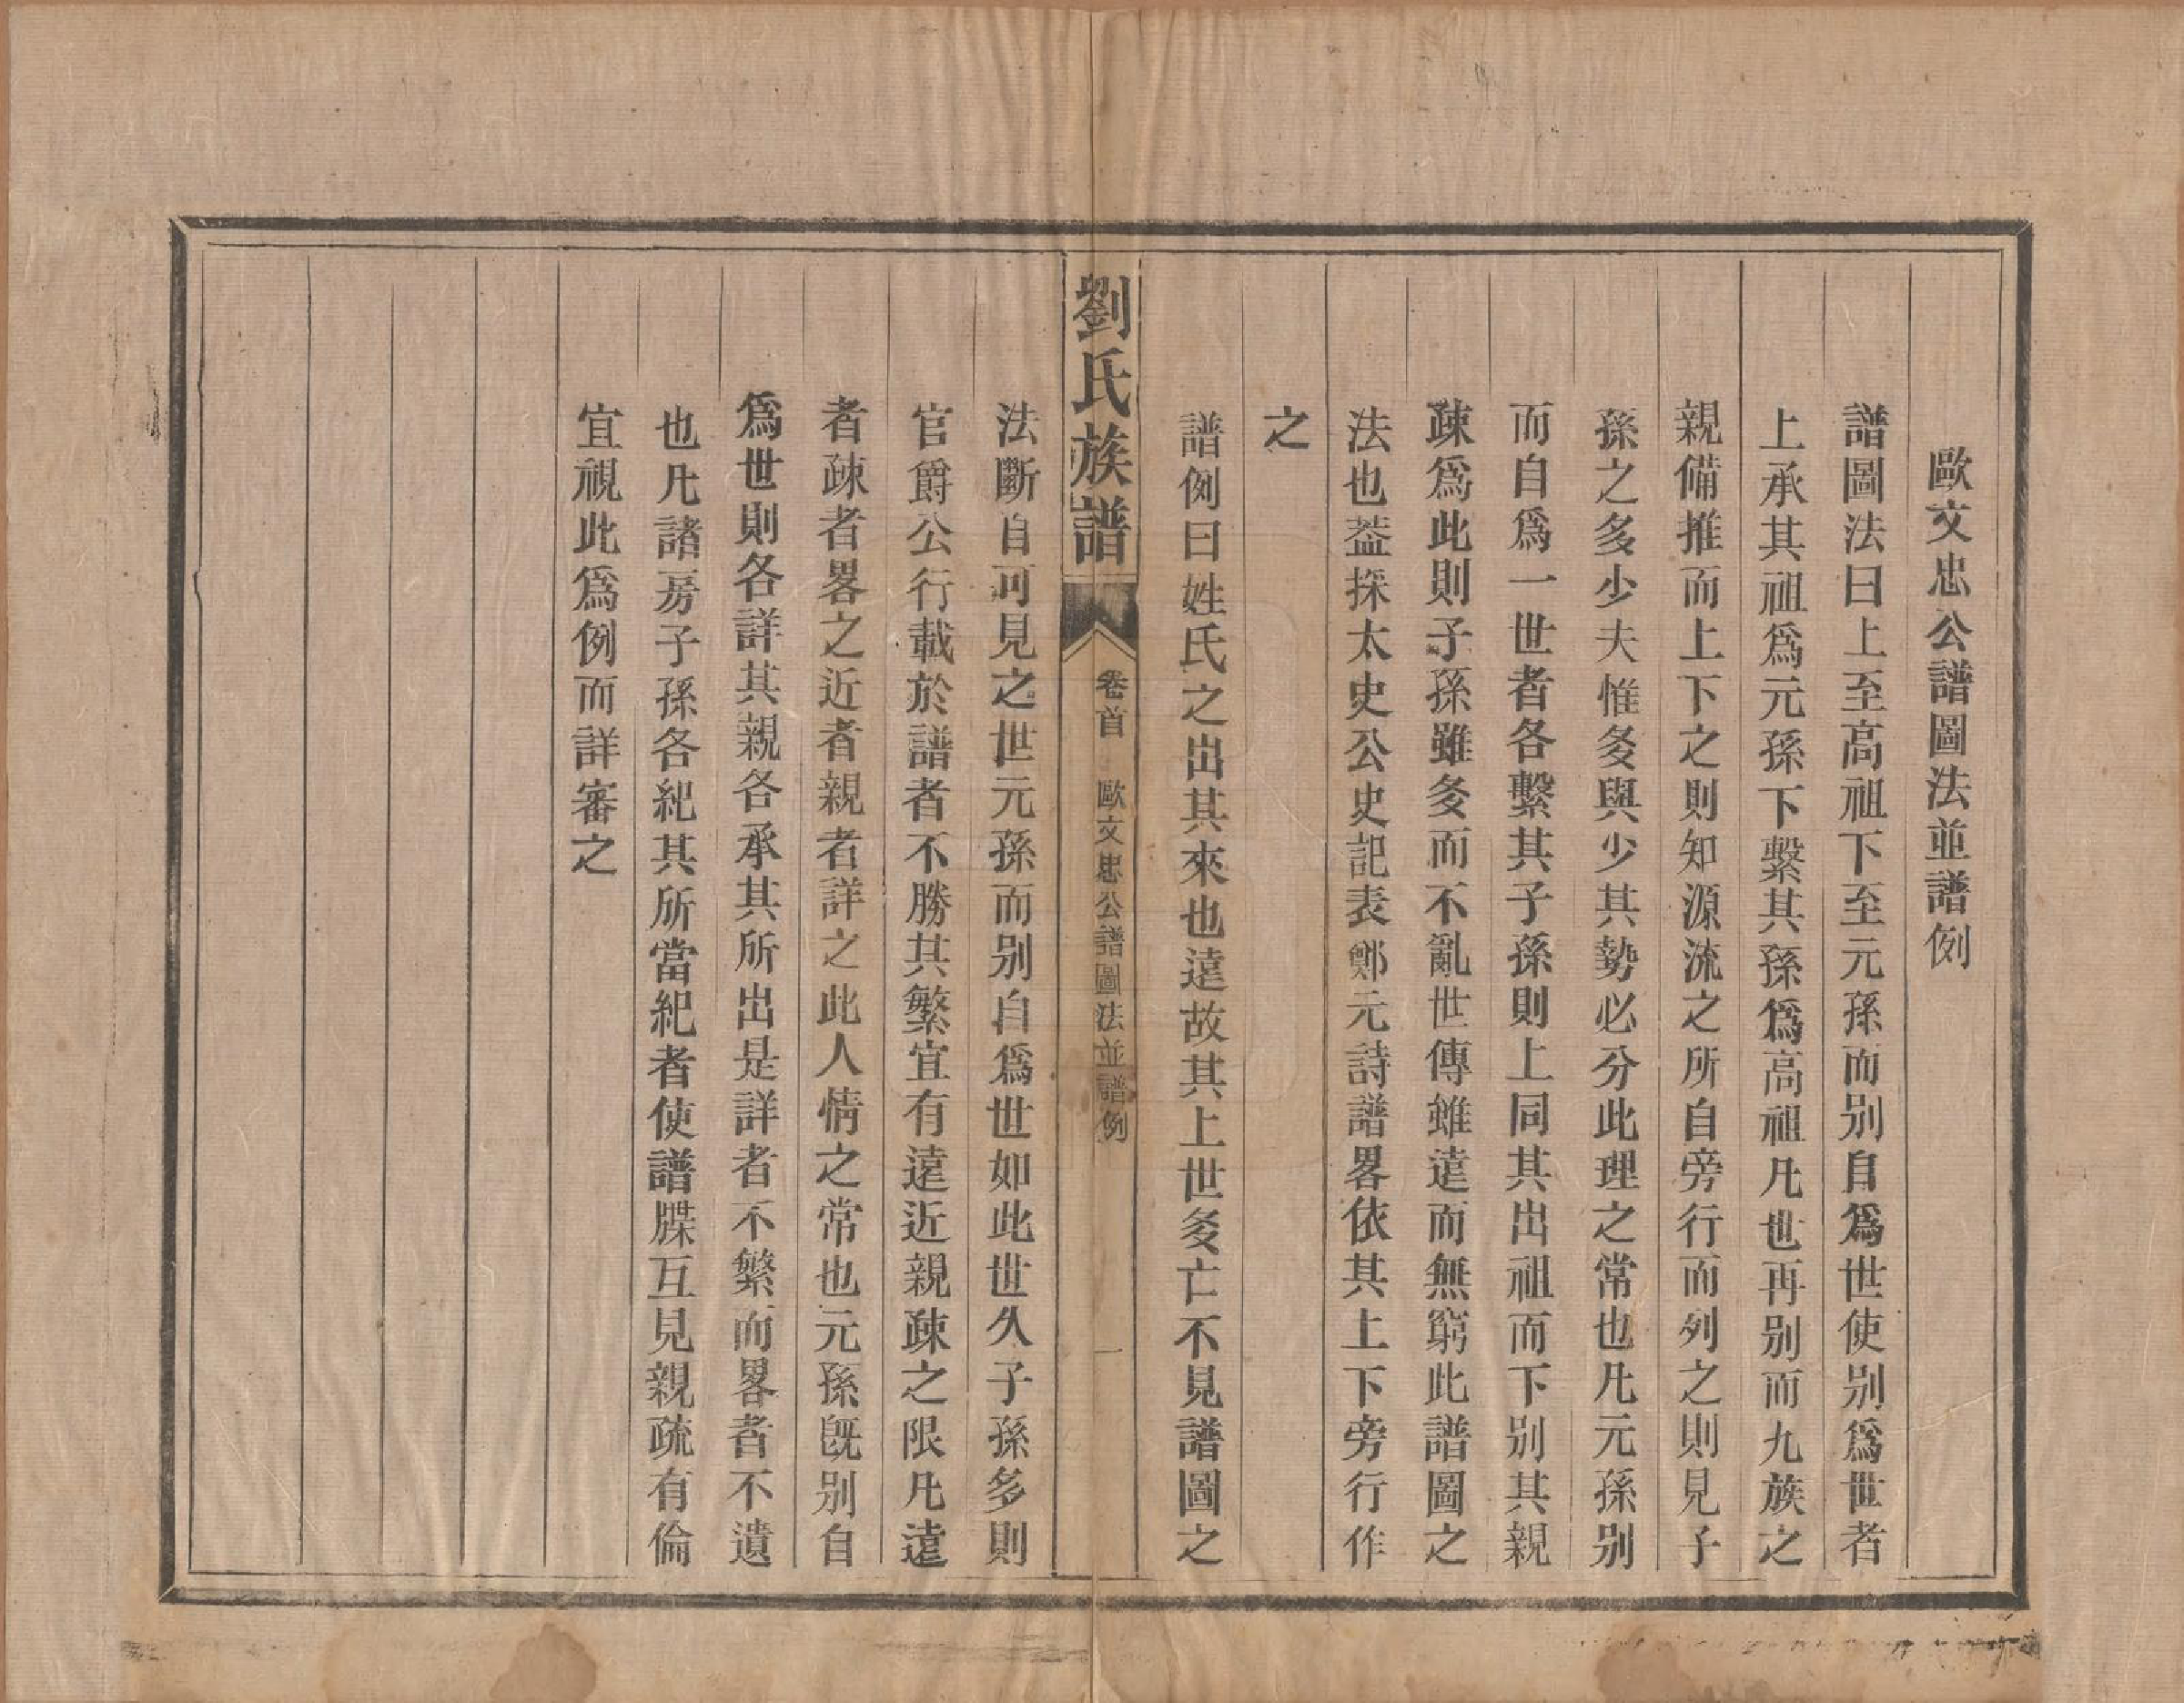 歐文忠公譜圖法並譜例
譜圖法曰上至高祖下至元孫而别自爲世使别爲世者
上承其祖爲元孫下繫其孫爲高祖凡世再别而九族之
親備推而上下之則知源流之所自旁行而列之則見子
孫之多少夫惟多與少其勢必分此理之常也凡元孫别
而自爲一世者各繫其子孫則上同其出祖而下别其親
疎爲此則子孫雖多而不亂世傳雖遠而無窮此譜圖之
法也葢採太史公史記表鄭元詩譜畧依其上下旁行作
之
譜例曰姓氏之出其來也遠故其上世多亡不見譜圖之
劉氏族譜
卷首
歐文忠公譜圖法並譜例
一
法斷自可見之世元孫而别自爲世如此世久子孫多則
官爵公行載於譜者不勝其繁宜有遠近親疎之限凡遠
者疎者畧之近者親者詳之此人情之常也元孫旣别自
爲世則各詳其親各承其所出是詳者不繁而畧者不遺
也凡諸房子孫各紀其所當紀者使譜牒互見親疏有倫
宜視此爲例而詳審之